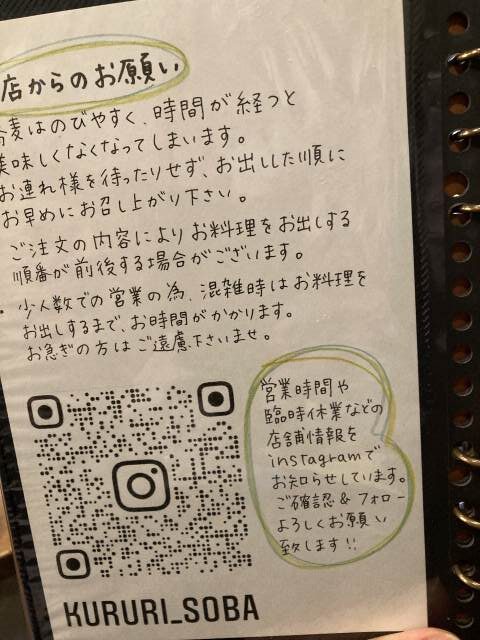 店からのお願い
蕎麦はのびやすく、時間が経つと
美味しくなくなってしまいます。
お連れ様を待ったりせず、お出しした順に
お早めにお召し上がり下さい。
ご注文の内容によりお料理をお出しする
順番が前後する場合がございます。
・少人数での営業の為、混雑時はお料理を
お出しするまで、お時間がかかります。
お急ぎの方はご遠慮下さいませ。
営業時間や
臨時休業などの
店舗情報を
instagramで
お知らせしています。
ご確認&フォロー
よろしくお願い
致します!!
KURURI_SOBA